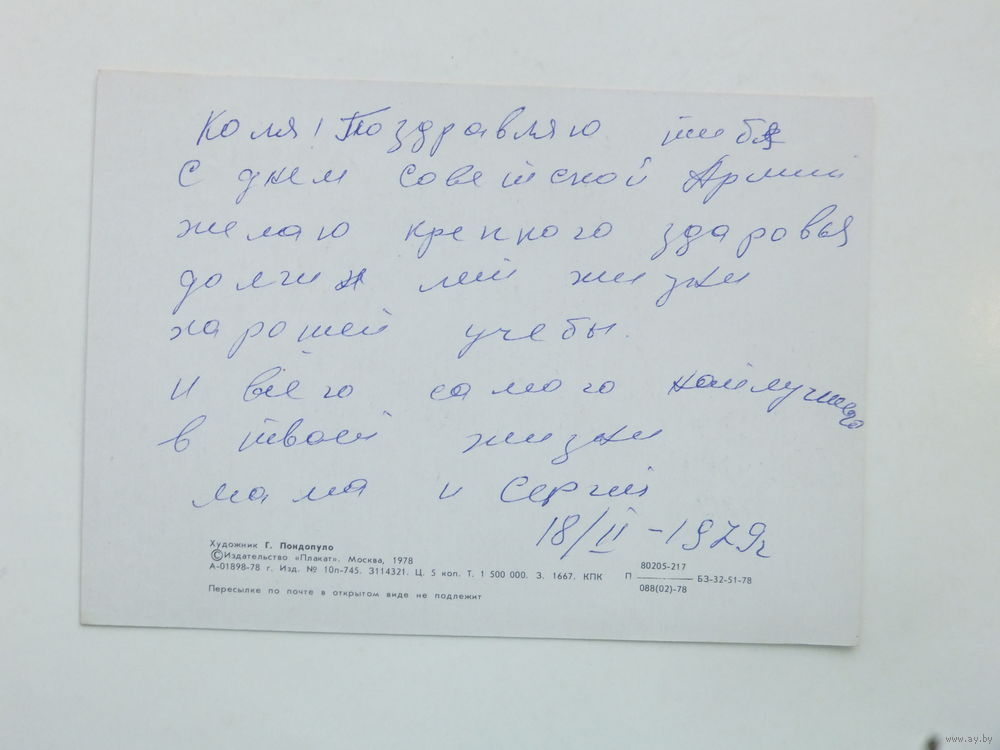 Коля! Поздравляю тибя
С днем советской Армий
желаю крепкого здаровья
долгих лет жизни
харошей учебы.
и всего самого найлучшего
в твоей жизни
мама и Сергей
18/II-1979г
Художник Г. Пондопуло
©Издательство «Плакат». Москва, 1978
А-01898-78 г. Изд. № 10п-745. 3114321. Ц. 5 коп. Т. 1 500 000. З. 1667. КПК
П 80205-217 БЗ-32-51-78
088(02)-78
Пересылке по почте в открытом виде не подлежит
www.ay.by